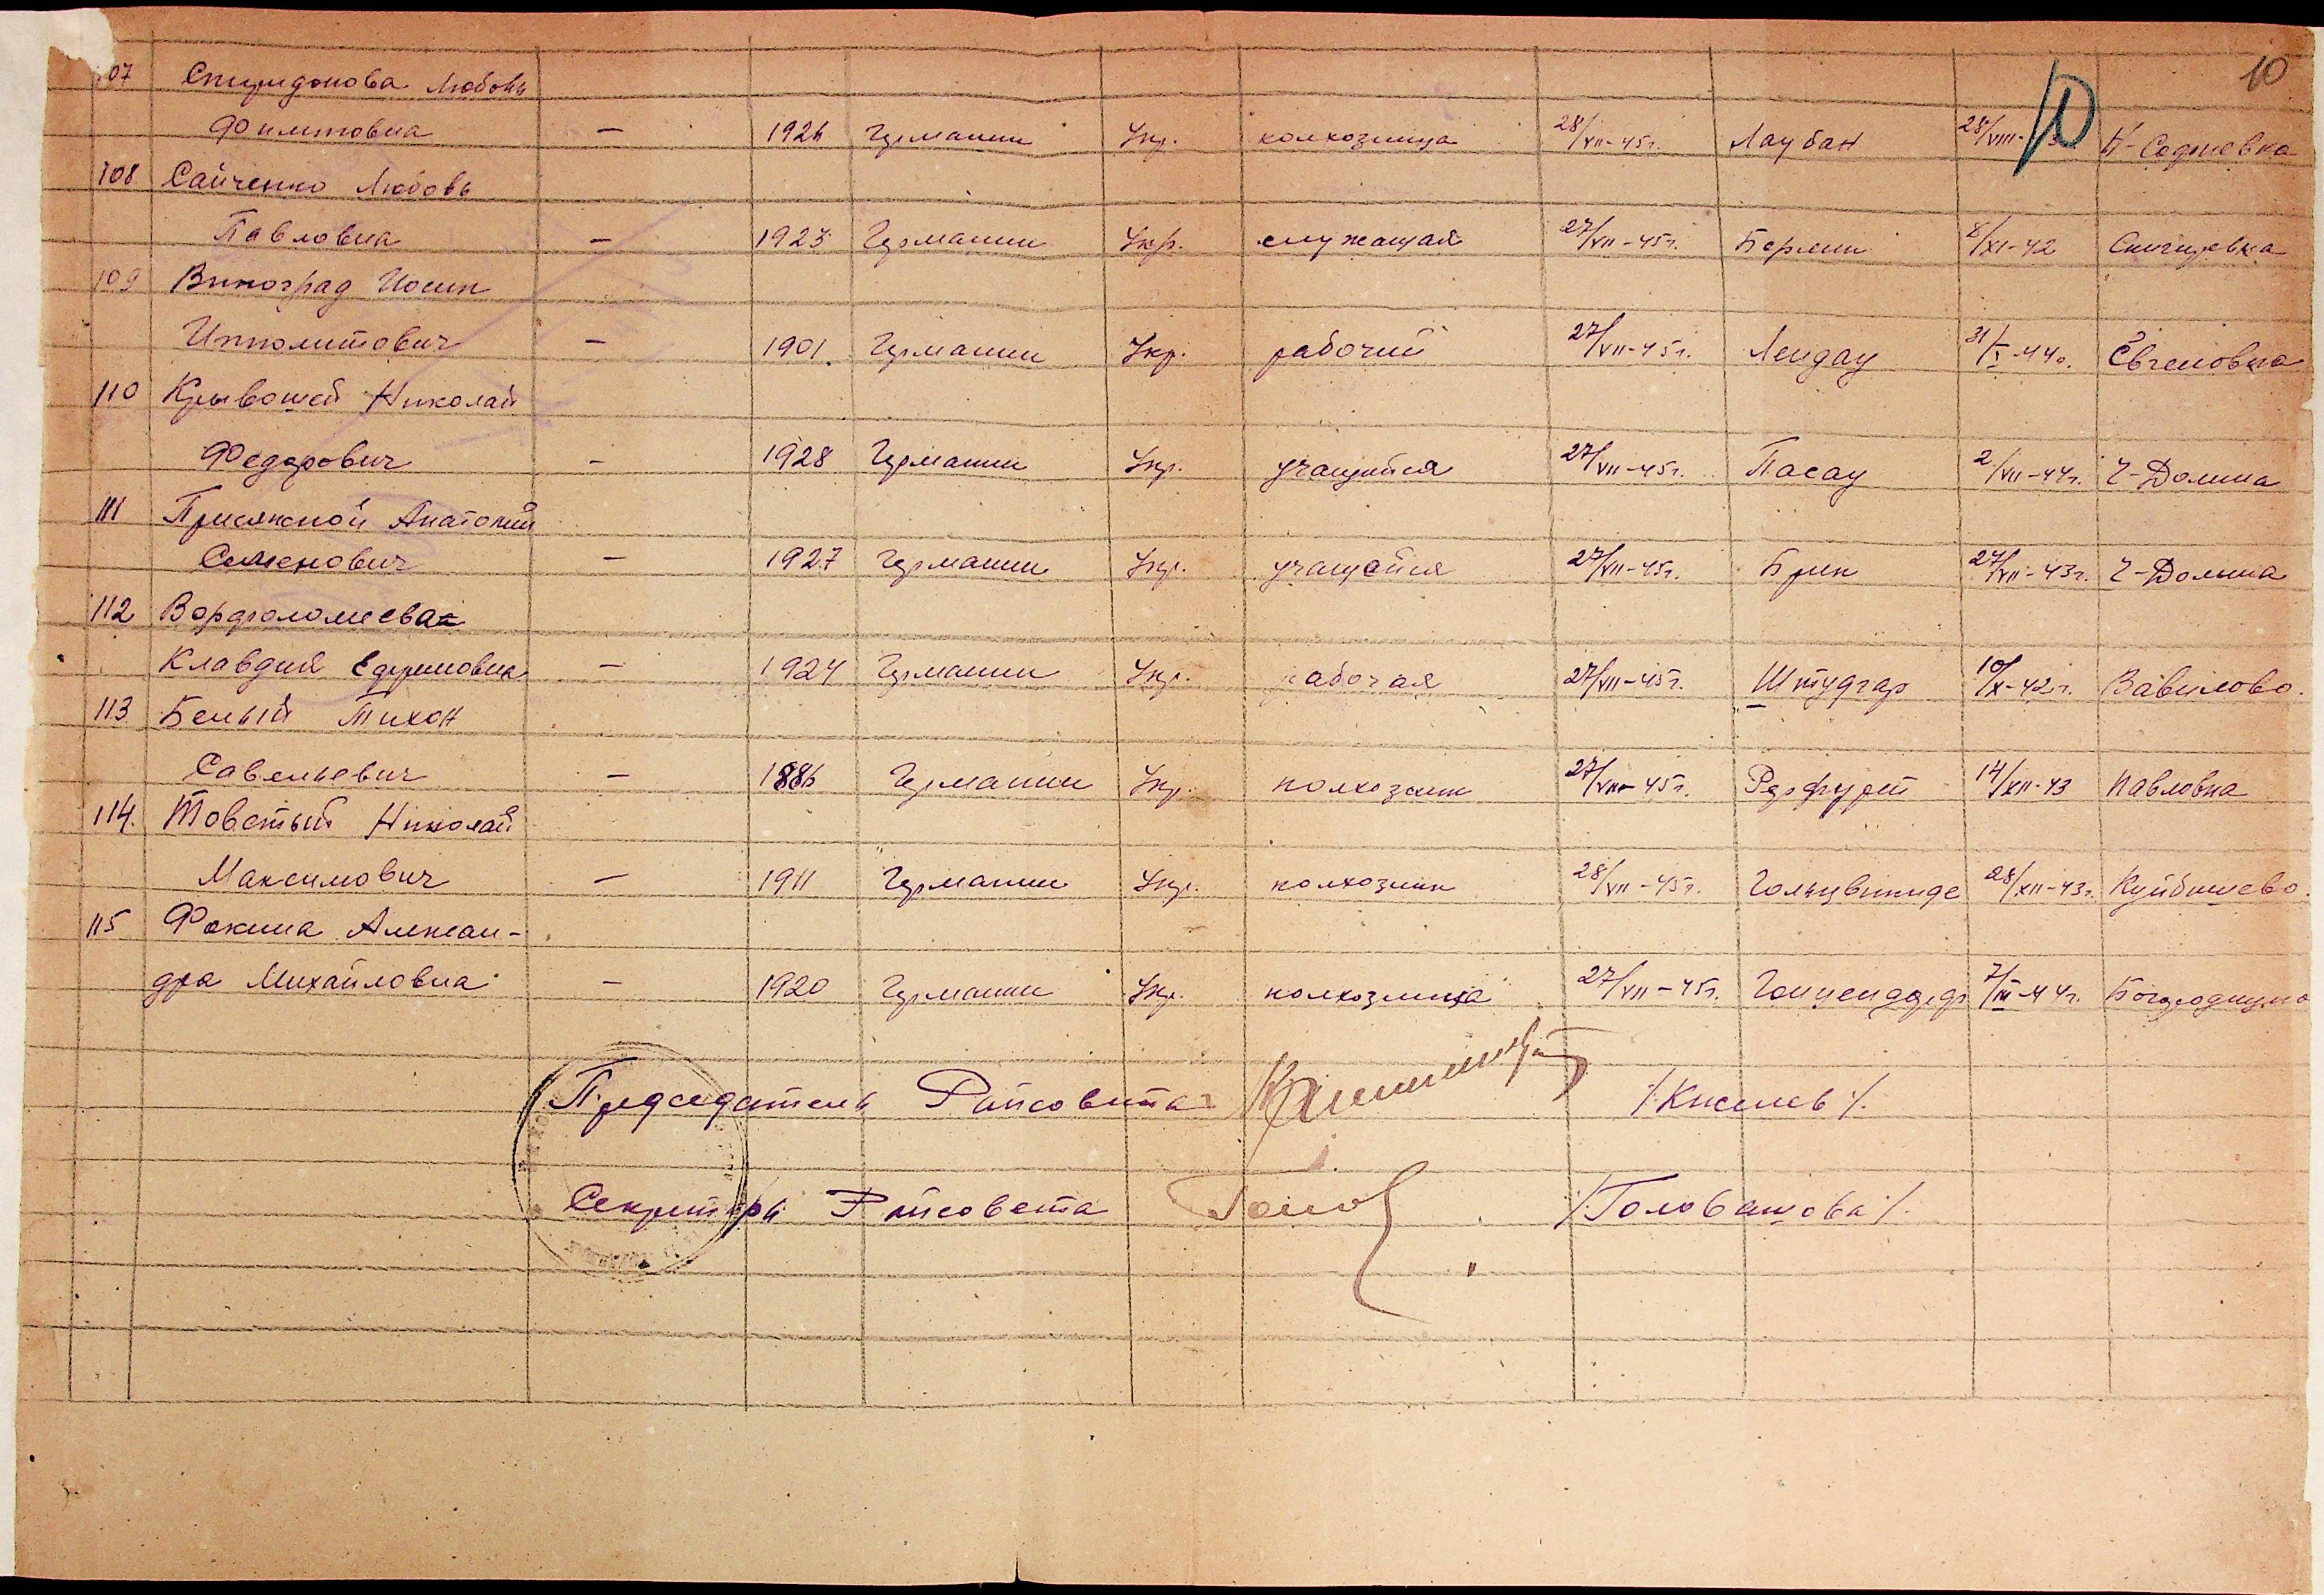 10
107 Спиридонова Любовь
Филиповна — 1926 Германии Укр. колхозница 28/VII-45г. Лаубан 28/VIII- Н-Содновка
108 Сайченко Любовь
Павловна — 1923 Германии Укр. служащая 27/VII-45г. Берлин 8/XI-42 Снигиревка
109 Виноград Иосип
Ипполитович — 1901. Германии Укр. рабочий 27/VII-45г. Лендау 31/I-44г. Евгеновка
110 Крывошей Николай
Федорович — 1928 Германии Укр. учащийся 27/VII-45г. Пасау 2/VII-44г. Ч-Долина
111 Присяжной Анатолий
Семенович — 1927 Германии Укр. учащейся 27/VII-45г. Брик 27/VII-43г. Ч-Долина
112 Ворфоломеева
Клавдия Ефремовна — 1924 Германии Укр. рабочая 27/VII-45г. Штудгар 10/X-42г. Вавилово.
113 Белый Тихон
Савельевич — 1886 Германии Укр. колхозник 27/VII-45г. Рерфурт 14/XII-43 Павловка
114. Товстый Николай
Максимович — 1911 Германии Укр. колхозник 28/VII-45г. Гольцвиниде 28/XII-43г. Куйбишево.
115 Фокина Алексан-
дра Михайловна — 1920 Германии Укр. колхозница 27/VII-45г. Гоицендорф 7/III-44г.
Председатель Райсовета /Киселев/.
Секретарь Райсовета Голов /Головашова/.